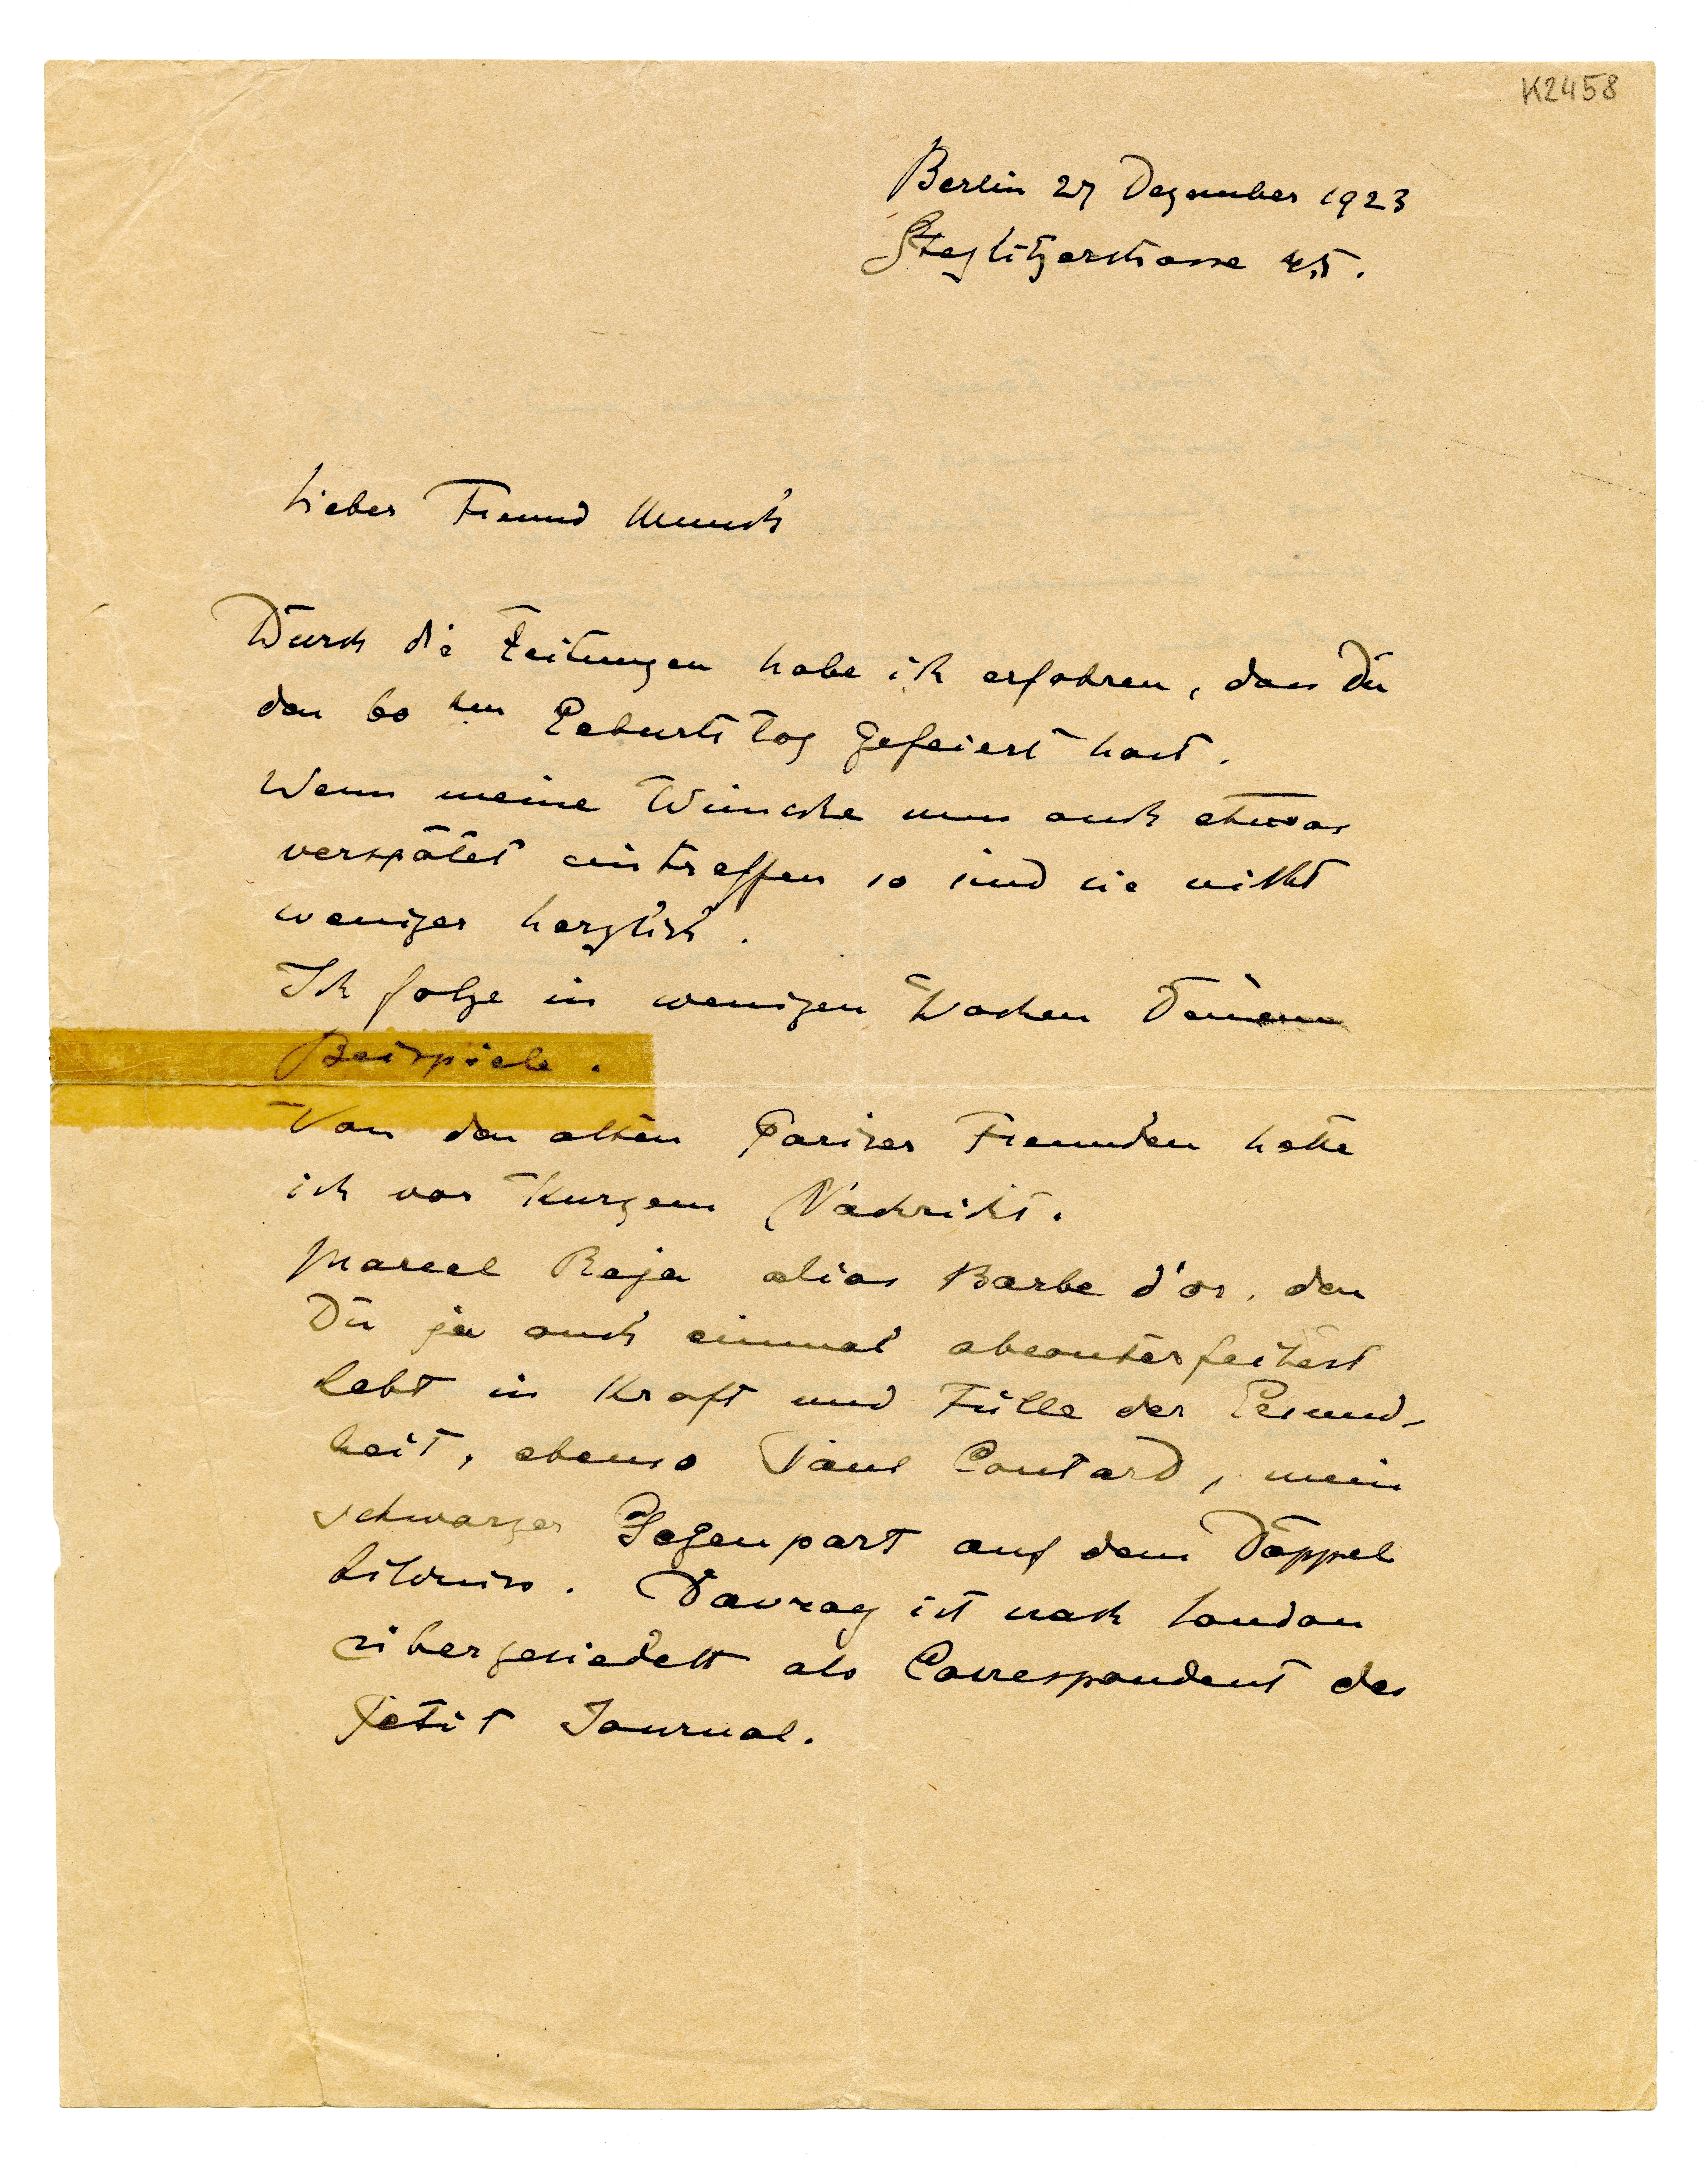 K2458
Berlin 27 Dezember 1923
Steglitzerstrasse 45.
Lieber Freund Munch
Durch die Zeitungen habe ich erfahren, dass Du
den 60 ten Geburtstag gefeiert hast.
Wenn meine Wünsche nun auch etwas
verspätet eintreffen so sind sie nicht
weniger herzlich.
Ich folge in wenigen Wochen Deinem
Beispiele.
Von den alten Pariser Freunden hatte
ich vor Kurzem Nachricht.
Marcel Reja alias Barbe d'or, den
Du ja auch einmal abconterfeitest
lebt in Kraft und Fülle der Gesund-
heit, ebenso Paul Contard, mein
schwarzer Gegenpart auf dem Doppel
bildniss. Davray ist nach London
übergesiedelt als Correspondent des
Petit Journal.